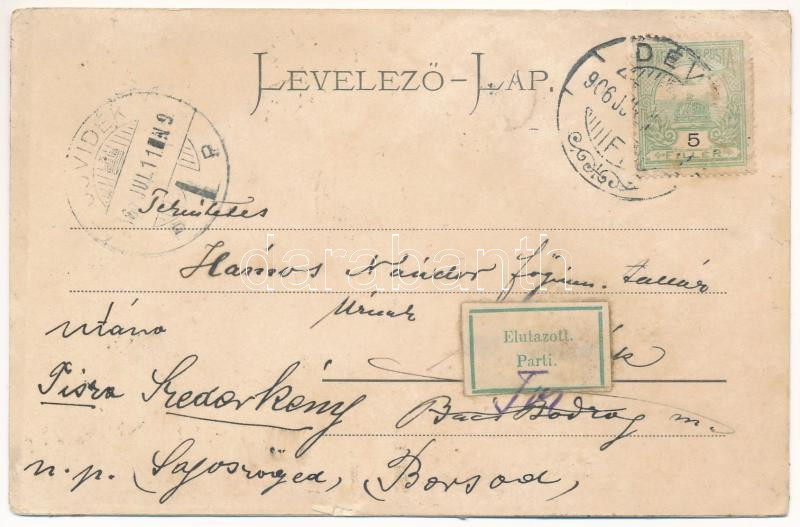 LEVELEZŐ-LAP.
DÉV
906
5
FILLÉR
UJVIDÉK
JUL 11 N 9
Tekintetes
Hámos Nándor főgimn. tanár
Urnak
utána
Elutazott.
Parti.
Tisza Szederkény
Bács Bodrog m.
u. p. (Sajószöged, (Borsod,
darabanth